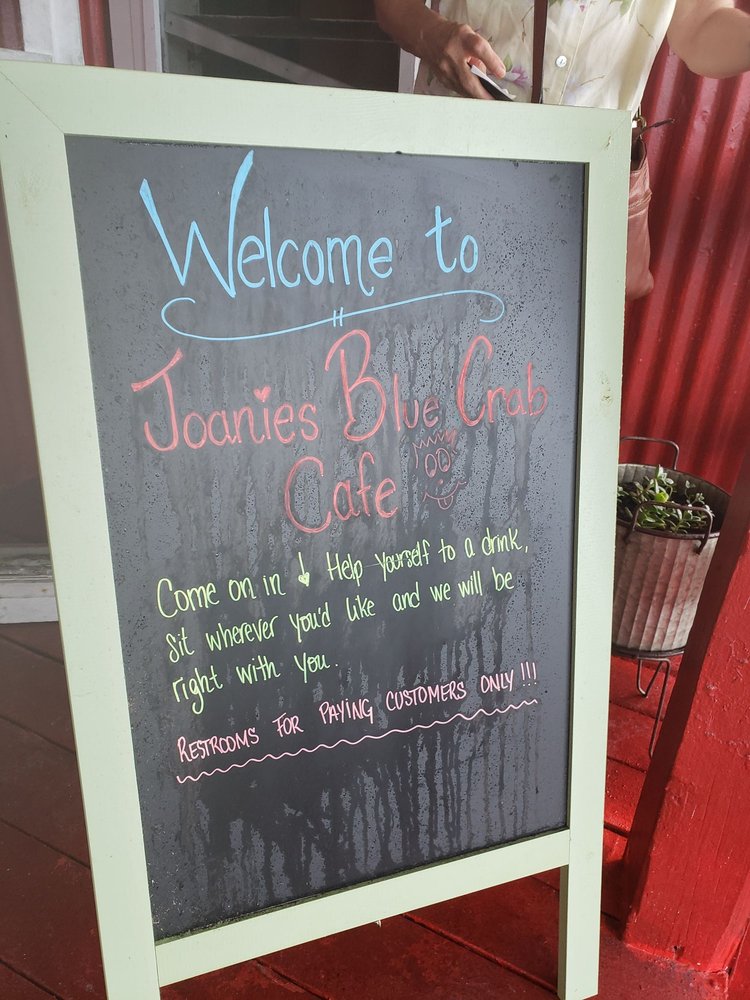 Welcome to
Joanies Blue Crab
Cafe
Come on in! Help yourself to a drink,
sit wherever you'd like and we will be
right with you.
RESTROOMS FOR PAYING CUSTOMERS ONLY!!!